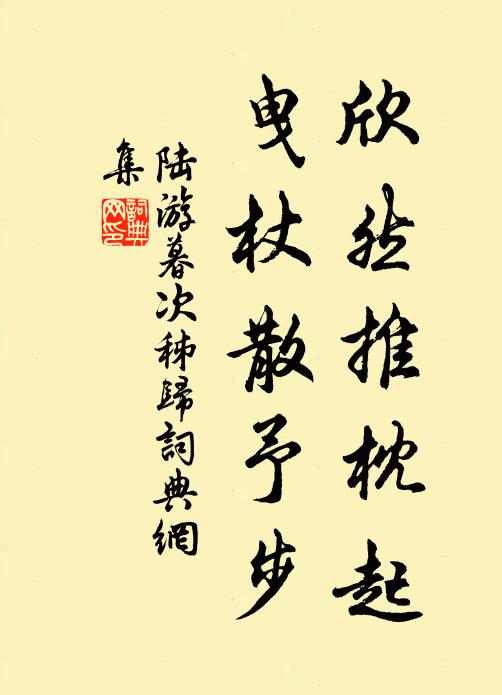 欣然推枕起
曳杖散予步
陆游暮次秭歸詞典網
集
詞典网印